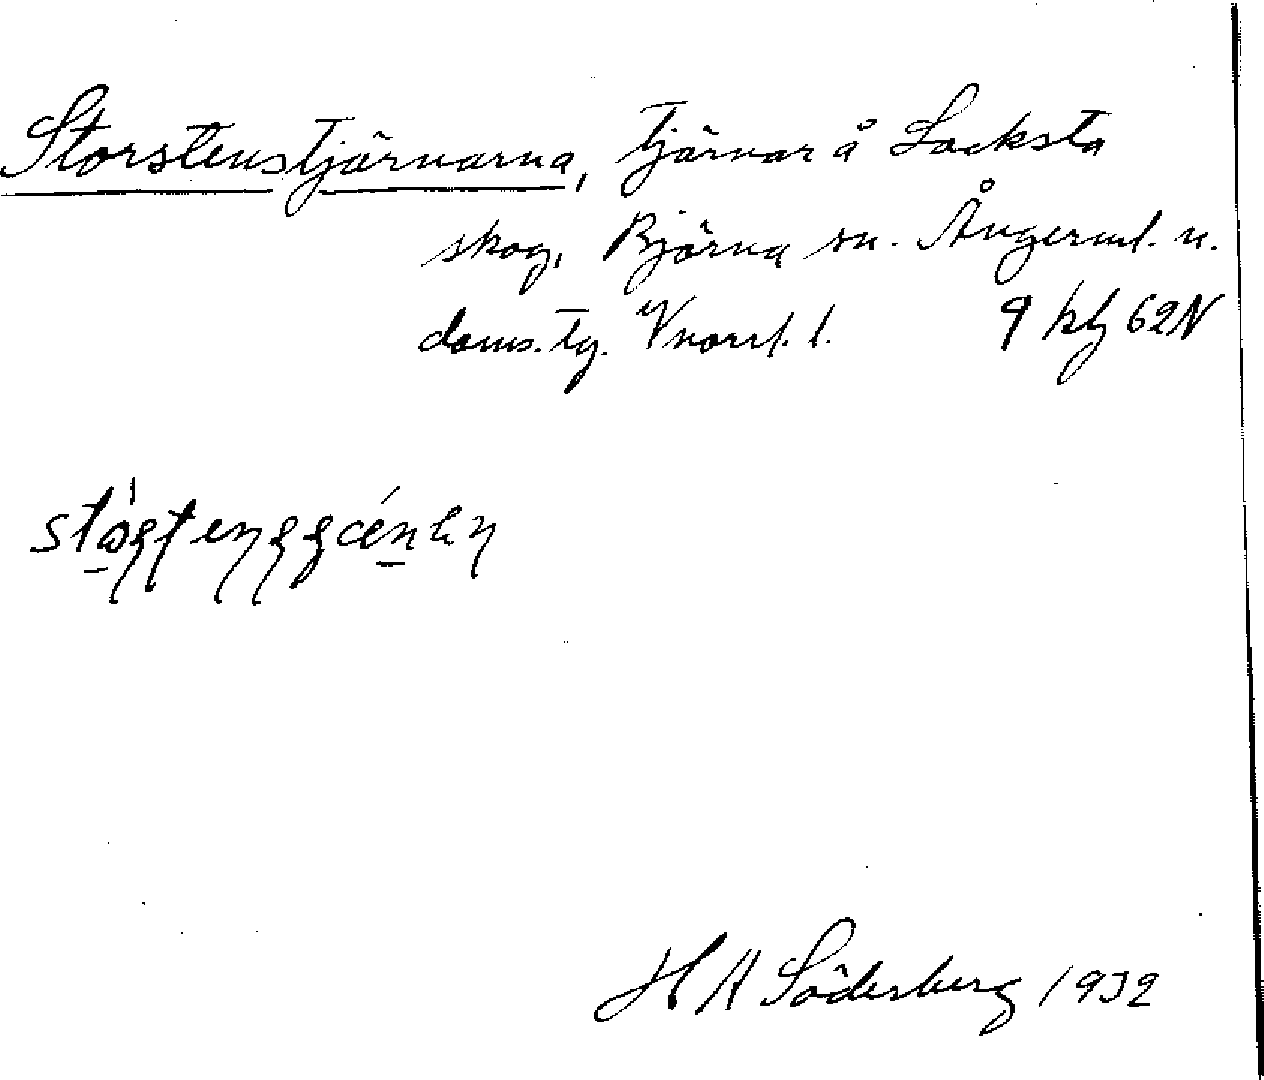 Storstenstjärnarna, tjärnar å Locksta
skog, Björna sn. Ångerml. n.
doms. tg. Vnorrl. l. 9 kbf 62N
H A Söderberg 1932